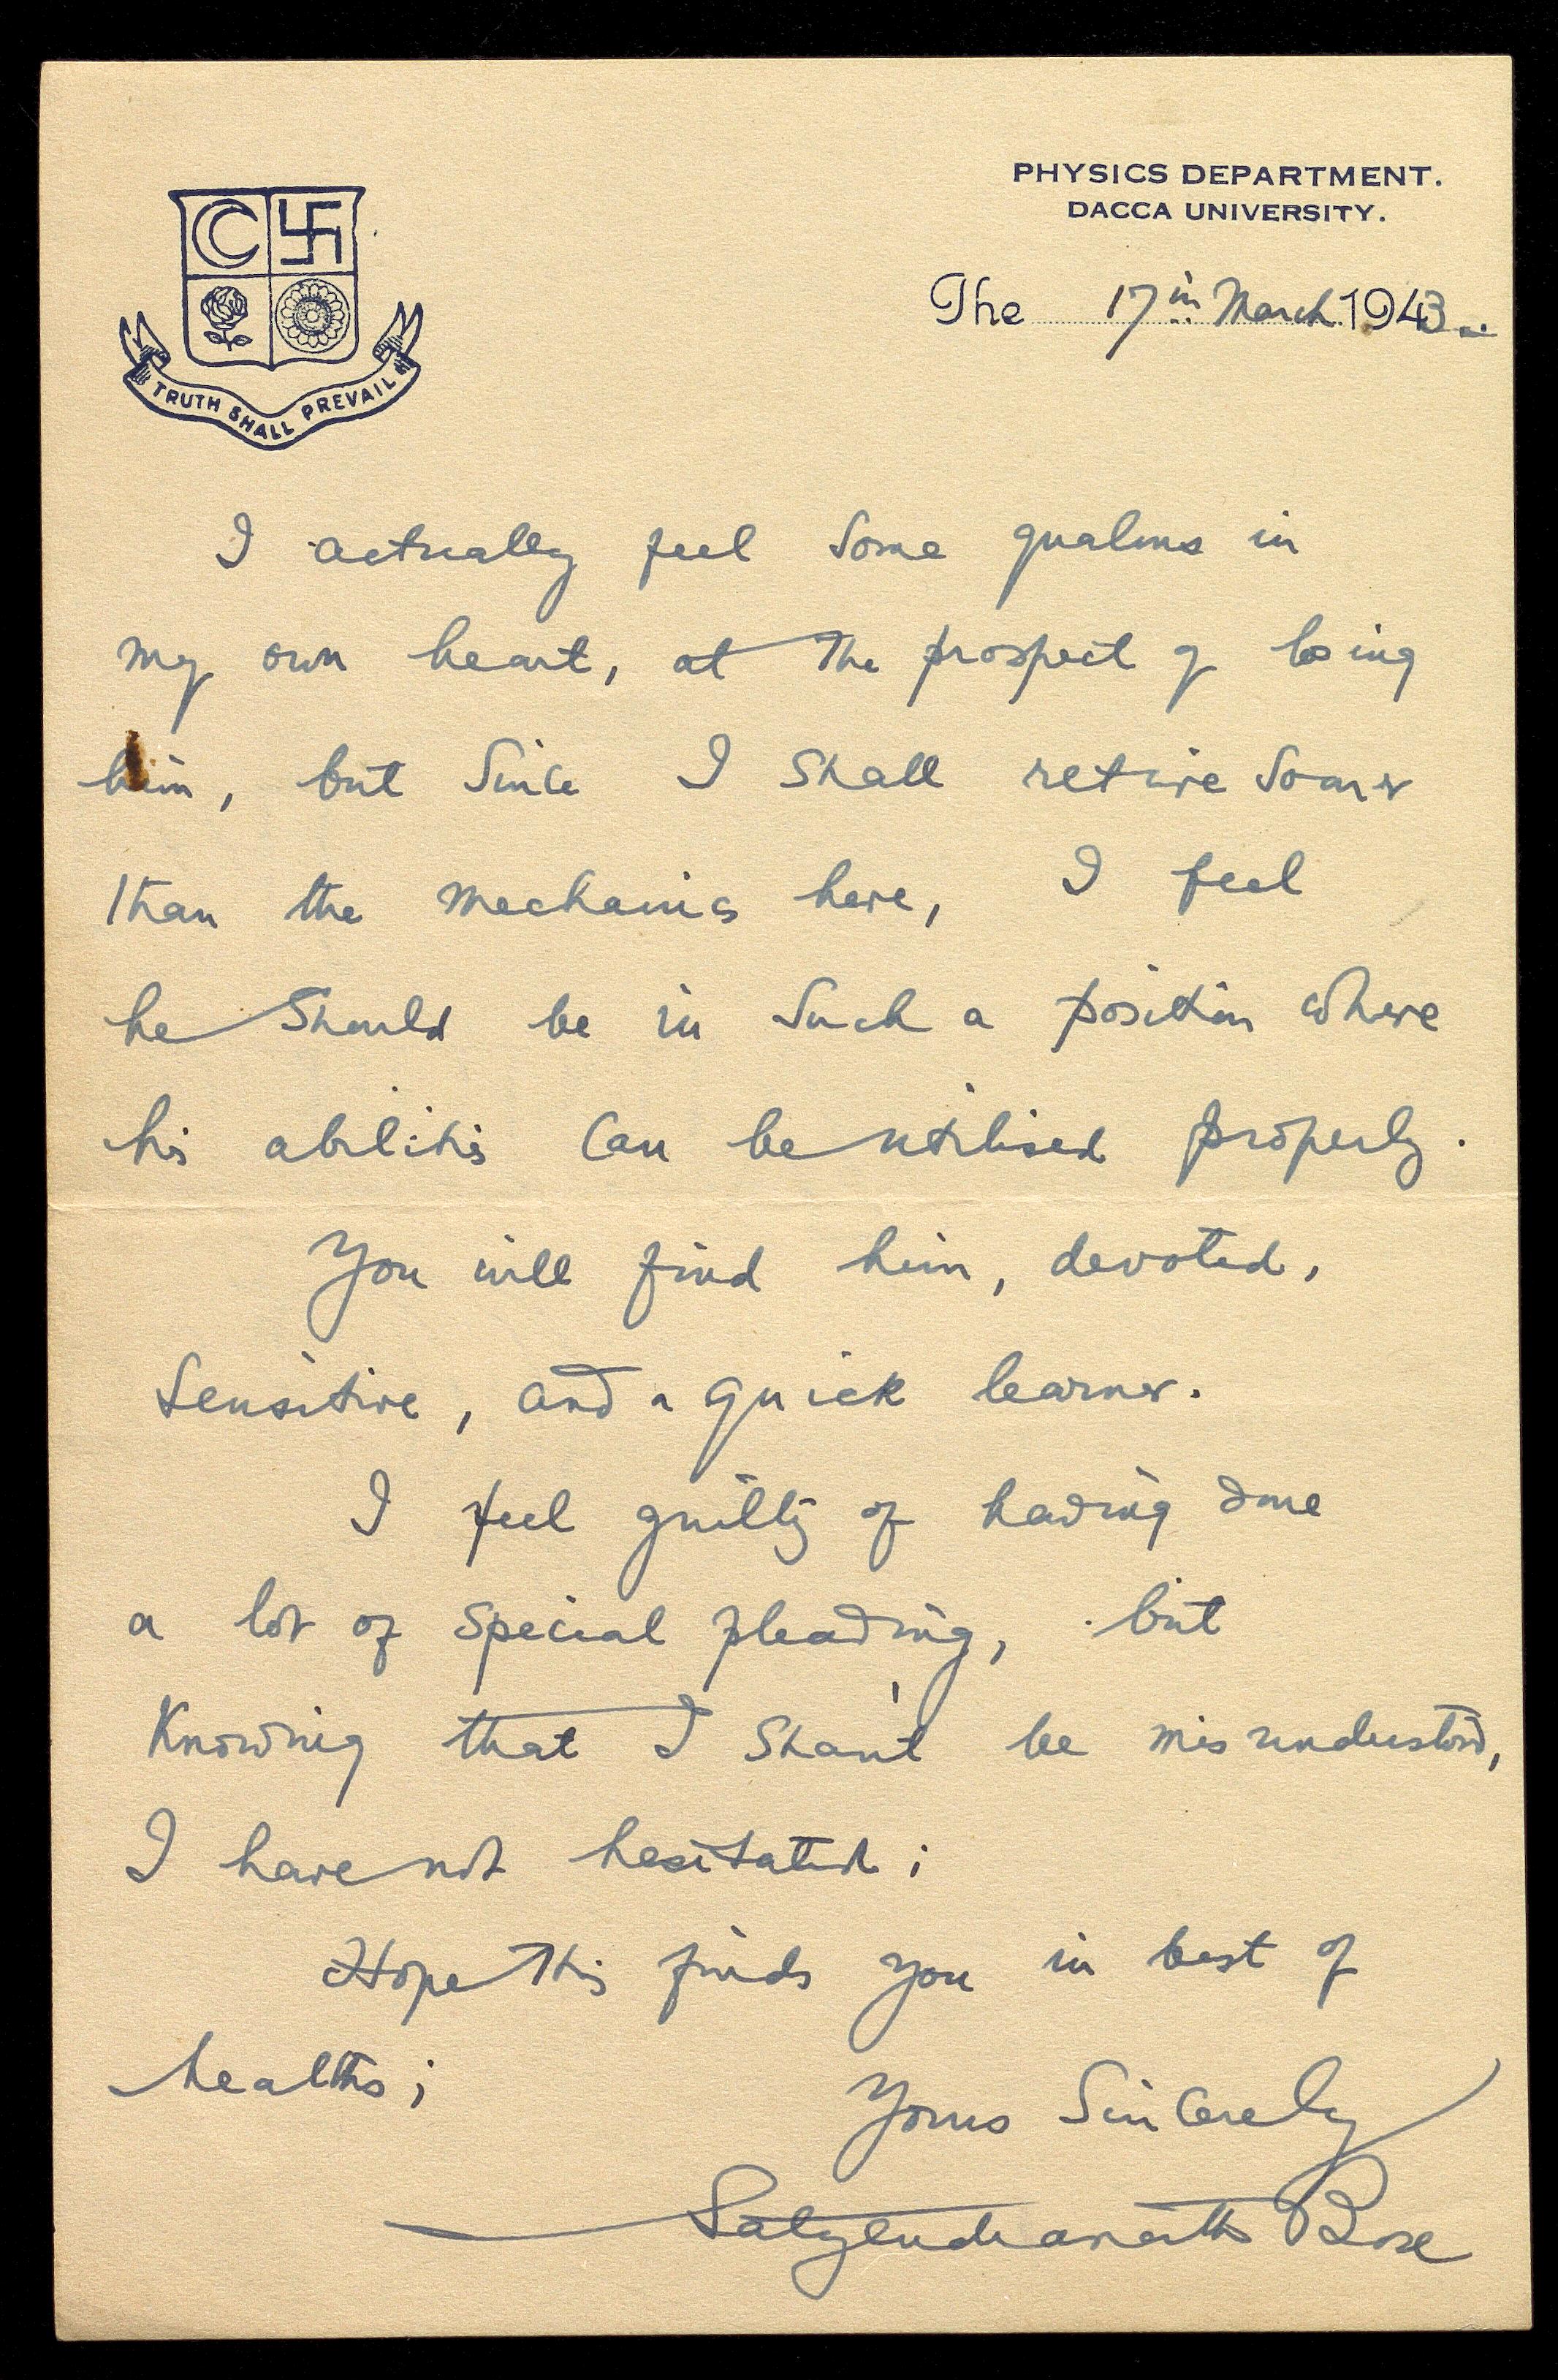 PHYSICS DEPARTMENT.
DACCA UNIVERSITY.
The 17th March 1943
TRUTH SHALL PREVAIL
I actually feel some qualms in
my own heart, at the prospect of losing
him, but since I shall retire sooner
than the mechanics here, I feel
he should be in such a position where
his abilities can be utilised properly.
You will find him, devoted,
sensitive, and a quick learner.
I feel guilty of having done
a lot of special pleading, but
Knowing that I shan't be misunderstood,
I have not hesitated;
Hope this finds you in best of
healths;
Yours Sincerely
Satyendranath Bose